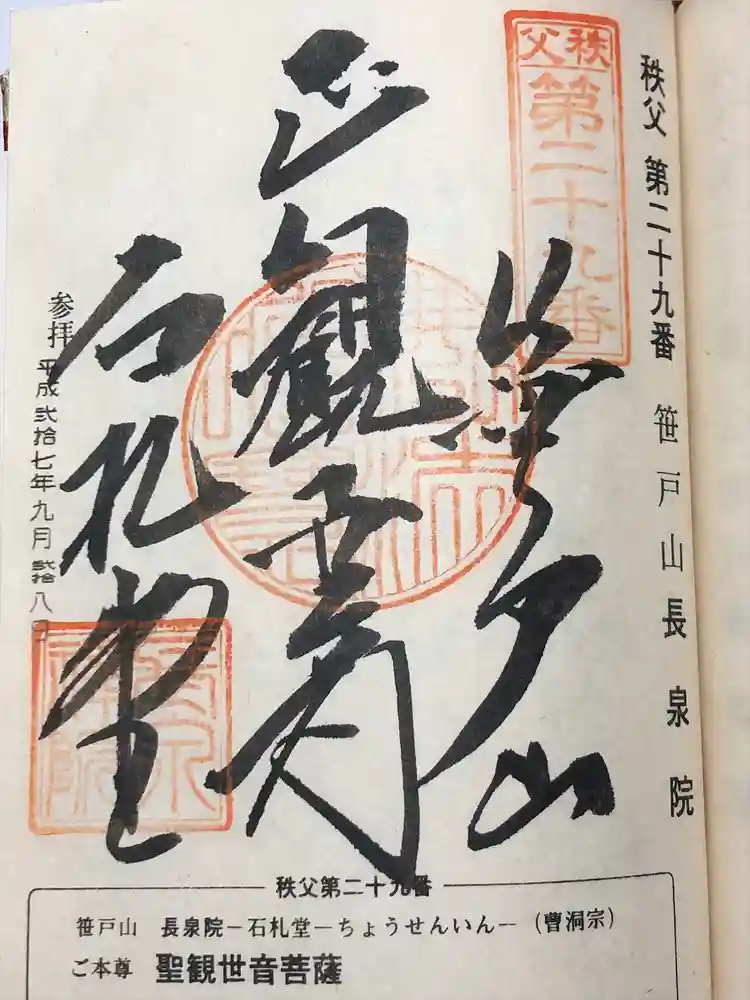 秩父 第二十九番 笹戸山長泉院
秩父
第二十九番
笹戸山
正観世音
石札堂
参拝 平成弐拾七年九月弐拾八日
秩父第二十九番
笹戸山 長泉院－石札堂－ちょうせんいん－（曹洞宗）
ご本尊 聖観世音菩薩